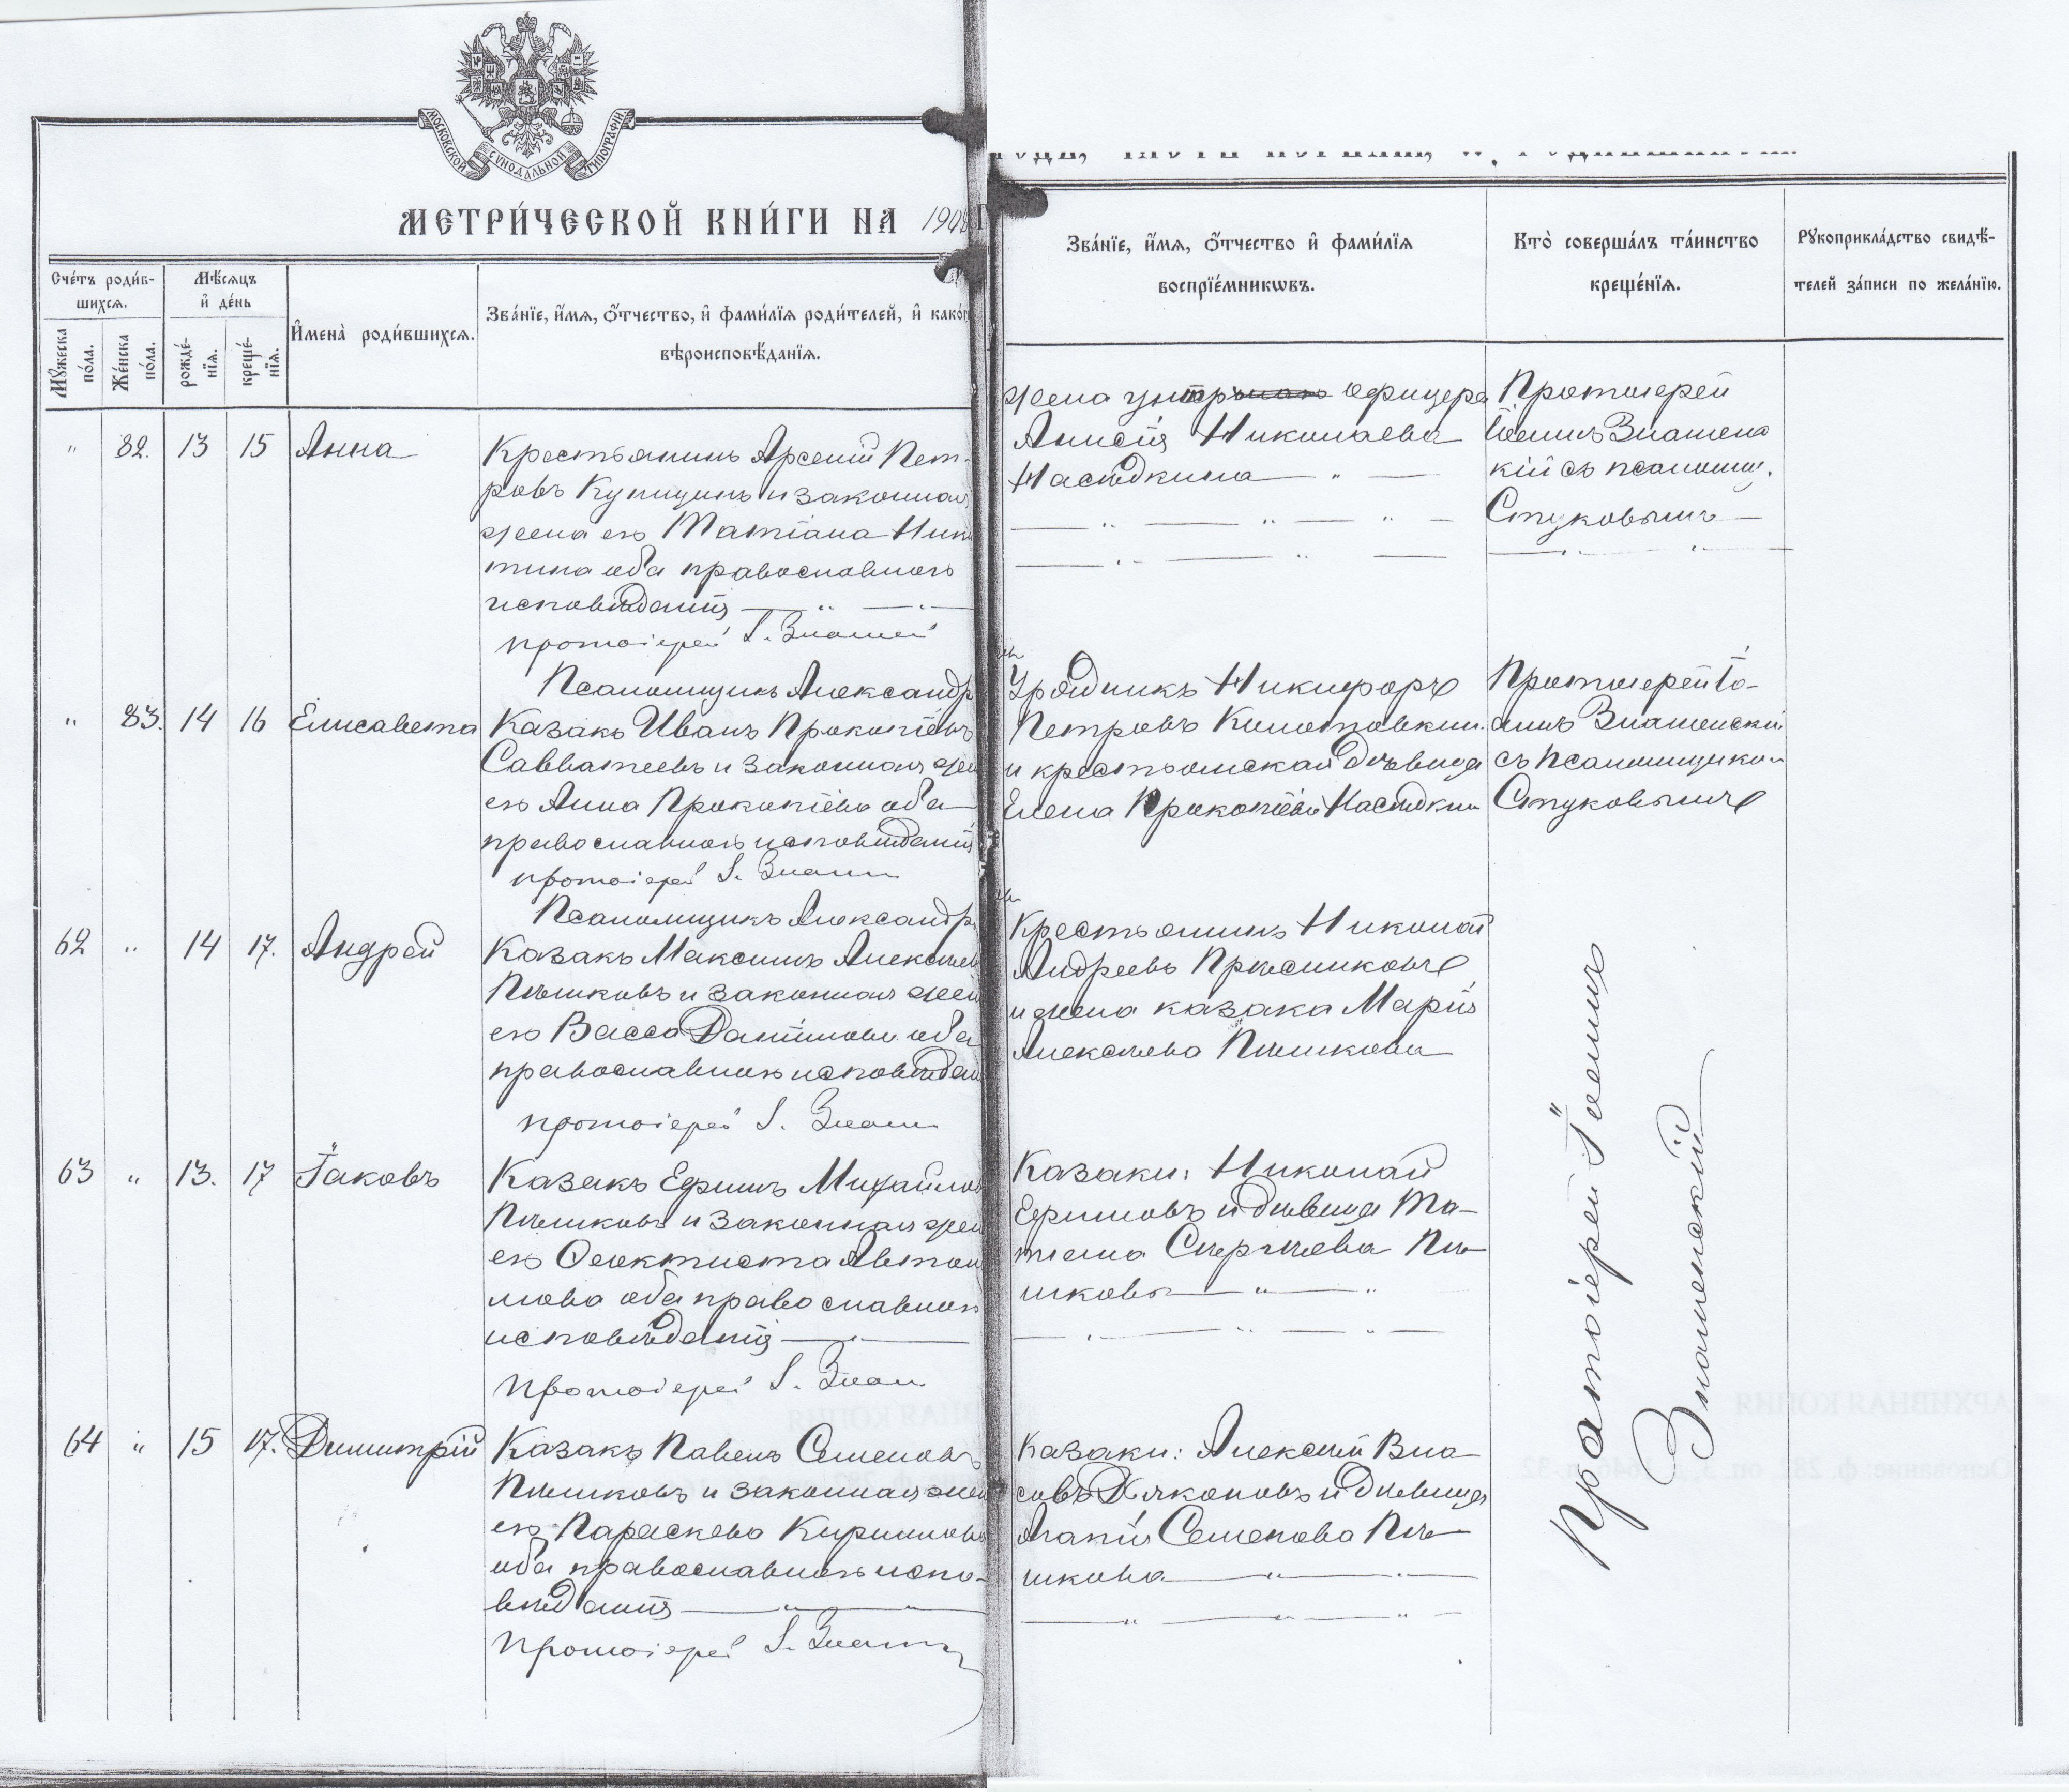 МОСКОВСКОЙ СУНОДАЛЬНОЙ ТИПОГРАФІИ
МЕТРИ́ЧЕСКОЙ КНИ́ГИ НА 1908
Сче́тъ роди́в-
шихсѧ.
Мꙋ́жеска
по́ла.
Же́нска
по́ла.
Мѣ́сѧцъ
и҆ де́нь
рожде́-
нїѧ.
креще́-
нїѧ.
И҆мена̀ роди́вшихсѧ.
Зва́нїе, и҆́мѧ, ѻ҆́тчество, и҆ фами́лїѧ роди́телей, и҆ како́г
вѣроисповѣ́данїѧ.
Зва́нїе, и҆́мѧ, ѻ҆́тчество и҆ фами́лїѧ
воспрїе́мникѡвъ.
Кто̀ соверша́лъ та́инство
креще́нїѧ.
Рꙋкоприкла́дство свидѣ́-
телей за́писи по жела́нїю.
" 82. 13 15 Анна
Крестьянинъ Арсеній Пет-
ровъ Купцинъ и законная
жена его Татіана Ники
тина оба православнаго
исповѣданія
протоіерей І. Знамен
жена унтръ офицера
Анисія Николаева
Насѣдкина
Протоіерей
Іоаннъ Знаменс
кій съ псаломщ.
Стуковымъ
Псаломщикъ Александр
" 83. 14 16 Елисавета
Казакъ Иванъ Прокопіевъ
Савватеевъ и законная жен
его Анна Прокопіева оба
православнаго исповѣданія
протоіерей І. Знам
Урядникъ Никифоръ
Петровъ
и крестьянская дѣвица
Елена Прокопіева Насѣдкин
Протоіерей Іо-
аннъ Знаменскій
съ псаломщиком
Стуковымъ
Псаломщикъ Александр
62 " 14 17. Андрей
Казакъ Максимъ Алексѣев
Пѣшковъ и законная жен
его Васса Даніилова оба
православнаго исповѣдан
протоіерей І. Знам
Крестьянинъ Николай
Андреевъ Прѣсниковъ
и жена казака Марія
Алексѣева Пѣшкова
63 " 13. 17 Іаковъ
Казакъ Ефимъ Михайлов
Пѣшковъ и законная жен
его Феоктиста Автон
мова оба православнаго
исповѣданія
Протоіерей І. Знам
Казаки: Николай
Ефимовъ и дѣвица Та-
тіана Сергѣева Пѣ-
шковы
64 " 15 17. Димитрій
Казакъ Павелъ Семеновъ
Пѣшковъ и законная жен
его Параскева Кириллова
оба православнаго испо-
вѣданія
Протоіерей І. Знам
Казаки: Алексѣй Вла-
совъ Дьяконовъ и дѣвица
Агапія Семенова Пѣ-
шкова
Протоіерей Іоаннъ
Знаменскій
АРХИВНАЯ КОПИЯ